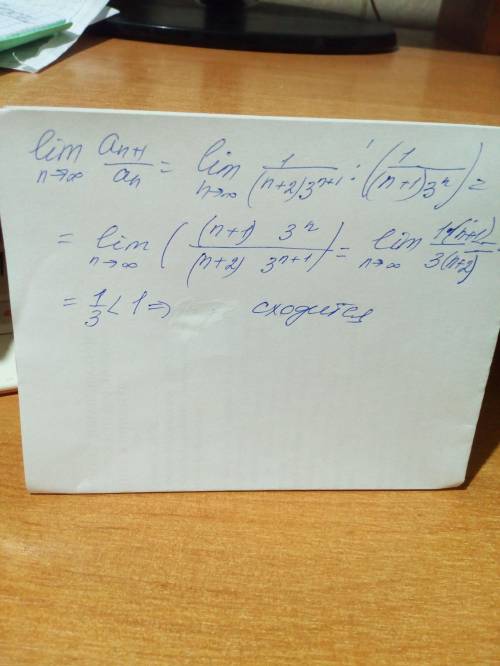 lim n→∞ a_{n+1}/a_n = lim n→∞ 1/((n+2)3^{n+1}) : (1/((n+1)3^n)) =
= lim n→∞ ((n+1) 3^n / (n+2) 3^{n+1}) = lim n→∞ 1(n+1)/3(n+2) =
= 1/3 < 1 ⇒ сходится